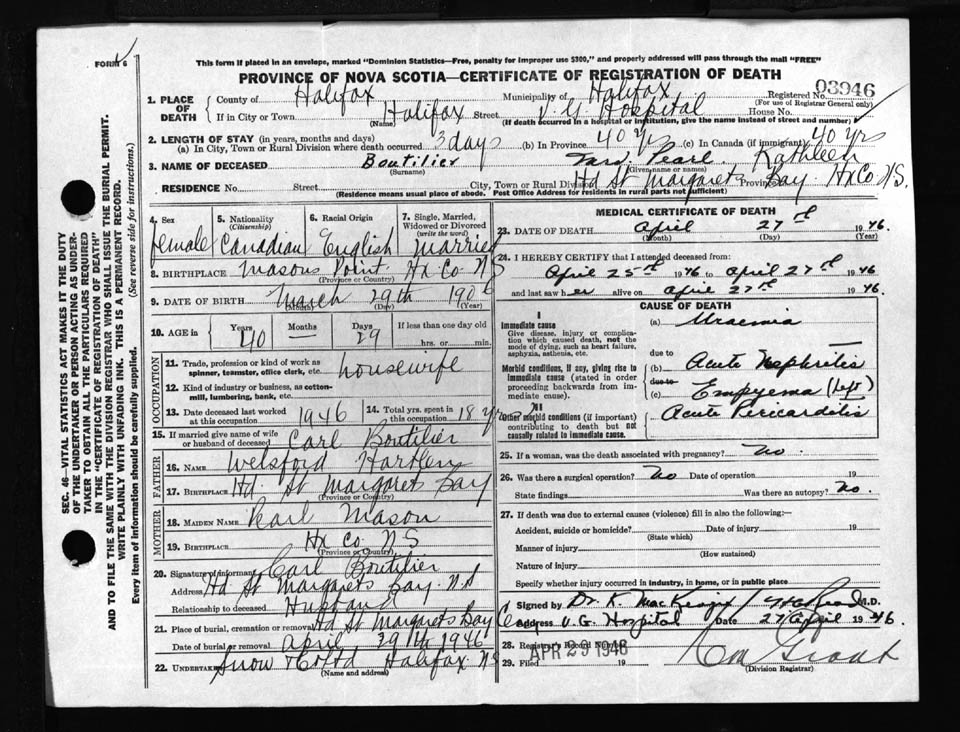 FORM 6
This form if placed in an envelope, marked "Dominion Statistics—Free, penalty for improper use $300," and properly addressed will pass through the mail "FREE"
PROVINCE OF NOVA SCOTIA—CERTIFICATE OF REGISTRATION OF DEATH
Registered No. 03946
(For use of Registrar General only)
1. PLACE OF DEATH County of Halifax Municipality of Halifax
If in City or Town Halifax (Name) Street V. G. Hospital House No.
(If death occurred in a hospital or institution, give the name instead of street and number)
2. LENGTH OF STAY (in years, months and days)
(a) In City, Town or Rural Division where death occurred 3 days (b) In Province 40 yrs (c) In Canada (if immigrant) 40 yrs
3. NAME OF DECEASED Boutilier (Surname) Mrs. Pearl Kathleen (Given name or names)
RESIDENCE No. Street City, Town or Rural Division Hd St Margarets Bay Province Hx Co N.S.
(Residence means usual place of abode. Post Office Address for residents in rural parts not sufficient)
SEC. 46—VITAL STATISTICS ACT MAKES IT THE DUTY
OF THE UNDERTAKER OR PERSON ACTING AS UNDER-
TAKER TO OBTAIN ALL THE PARTICULARS REQUIRED
IN THE "CERTIFICATE OF REGISTRATION OF DEATH"
AND TO FILE THE SAME WITH THE DIVISION REGISTRAR WHO SHALL ISSUE THE BURIAL PERMIT.
WRITE PLAINLY WITH UNFADING INK. THIS IS A PERMANENT RECORD.
Every item of information should be carefully supplied. (See reverse side for instructions.)
4. Sex female
5. Nationality (Citizenship) Canadian
6. Racial Origin English
7. Single, Married, Widowed or Divorced (write the word) Married
8. BIRTHPLACE Masons Point Hx Co N S
(Province or Country)
9. DATE OF BIRTH March 29th 1906
(Month) (Day) (Year)
10. AGE in Years 40 Months — Days 29 If less than one day old hrs. or min.
OCCUPATION
11. Trade, profession or kind of work as spinner, teamster, office clerk, etc. housewife
12. Kind of industry or business, as cotton-mill, lumbering, bank, etc.
13. Date deceased last worked at this occupation 1946
14. Total yrs. spent in this occupation 18 yrs
15. If married give name of wife or husband of deceased Carl Boutilier
FATHER
16. NAME Welsford Hartlen
17. BIRTHPLACE Hd. St Margarets Bay
(Province or Country)
MOTHER
18. MAIDEN NAME Pearl Mason
19. BIRTHPLACE Hx Co. N S
(Province or Country)
20. Signature of informant Carl Boutilier
Address Hd St Margarets Bay N S
Relationship to deceased Husband
21. Place of burial, cremation or removal Hd St Margarets Bay Cem
Date of burial or removal April 29th 1946
22. UNDERTAKER Snow & Co Ltd Halifax N S
(Name and address)
MEDICAL CERTIFICATE OF DEATH
23. DATE OF DEATH April 27th 1946
(Month) (Day) (Year)
24. I HEREBY CERTIFY that I attended deceased from:
April 25th 1946 to April 27th 1946
and last saw her alive on April 27th 1946.
CAUSE OF DEATH
I
Immediate cause
Give disease, injury or complication which caused death, not the mode of dying, such as heart failure, asphyxia, asthenia, etc.
(a) Uraemia
due to
Morbid conditions, if any, giving rise to immediate cause (stated in order proceeding backwards from immediate cause).
(b) Acute Nephritis
due to
(c) Empyema (Left)
II
Other morbid conditions (if important) contributing to death but not causally related to immediate cause.
Acute Pericarditis
25. If a woman, was the death associated with pregnancy? No.
26. Was there a surgical operation? No Date of operation 19
State findings Was there an autopsy? No.
27. If death was due to external causes (violence) fill in also the following:—
Accident, suicide or homicide? Date of injury 19
(State which)
Manner of injury
(How sustained)
Nature of injury
Specify whether injury occurred in industry, in home, or in public place
Signed by Dr. K. MacKenzie / M.D.
Address V. G. Hospital Date 27 April 1946.
28. Registrar's Record No.
29. Filed APR 29 1946 19
(Division Registrar)